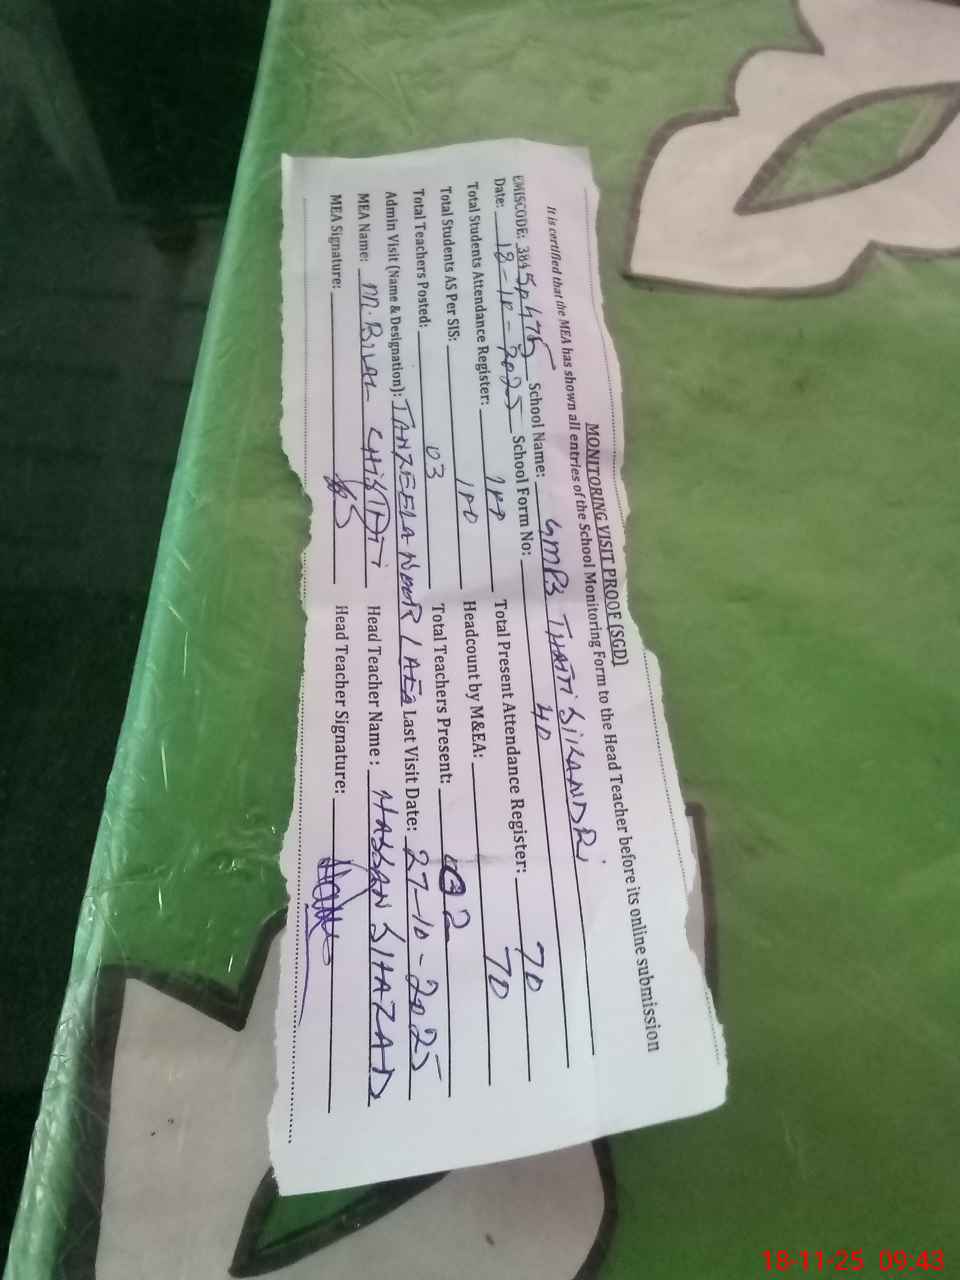 MONITORING VISIT PROOF (SGD)
It is certified that the MEA has shown all entries of the School Monitoring Form to the Head Teacher before its online submission
EMISCODE: 384 School Name: GMPS THATTI SIKANDRI
Date: 18-10-2025 School Form No: 40
Total Students Attendance Register: 100 Total Present Attendance Register: 70
Total Students AS Per SIS: 100 Headcount by M&EA: 70
Total Teachers Posted: 03 Total Teachers Present: 02
Admin Visit (Name & Designation): TANZEELA NOOR / AEO Last Visit Date: 27-10-2025
MEA Name: M. BILAL CHISHTI Head Teacher Name : HASSAN SHAZAD
MEA Signature: Head Teacher Signature:
18-11-25 09:43